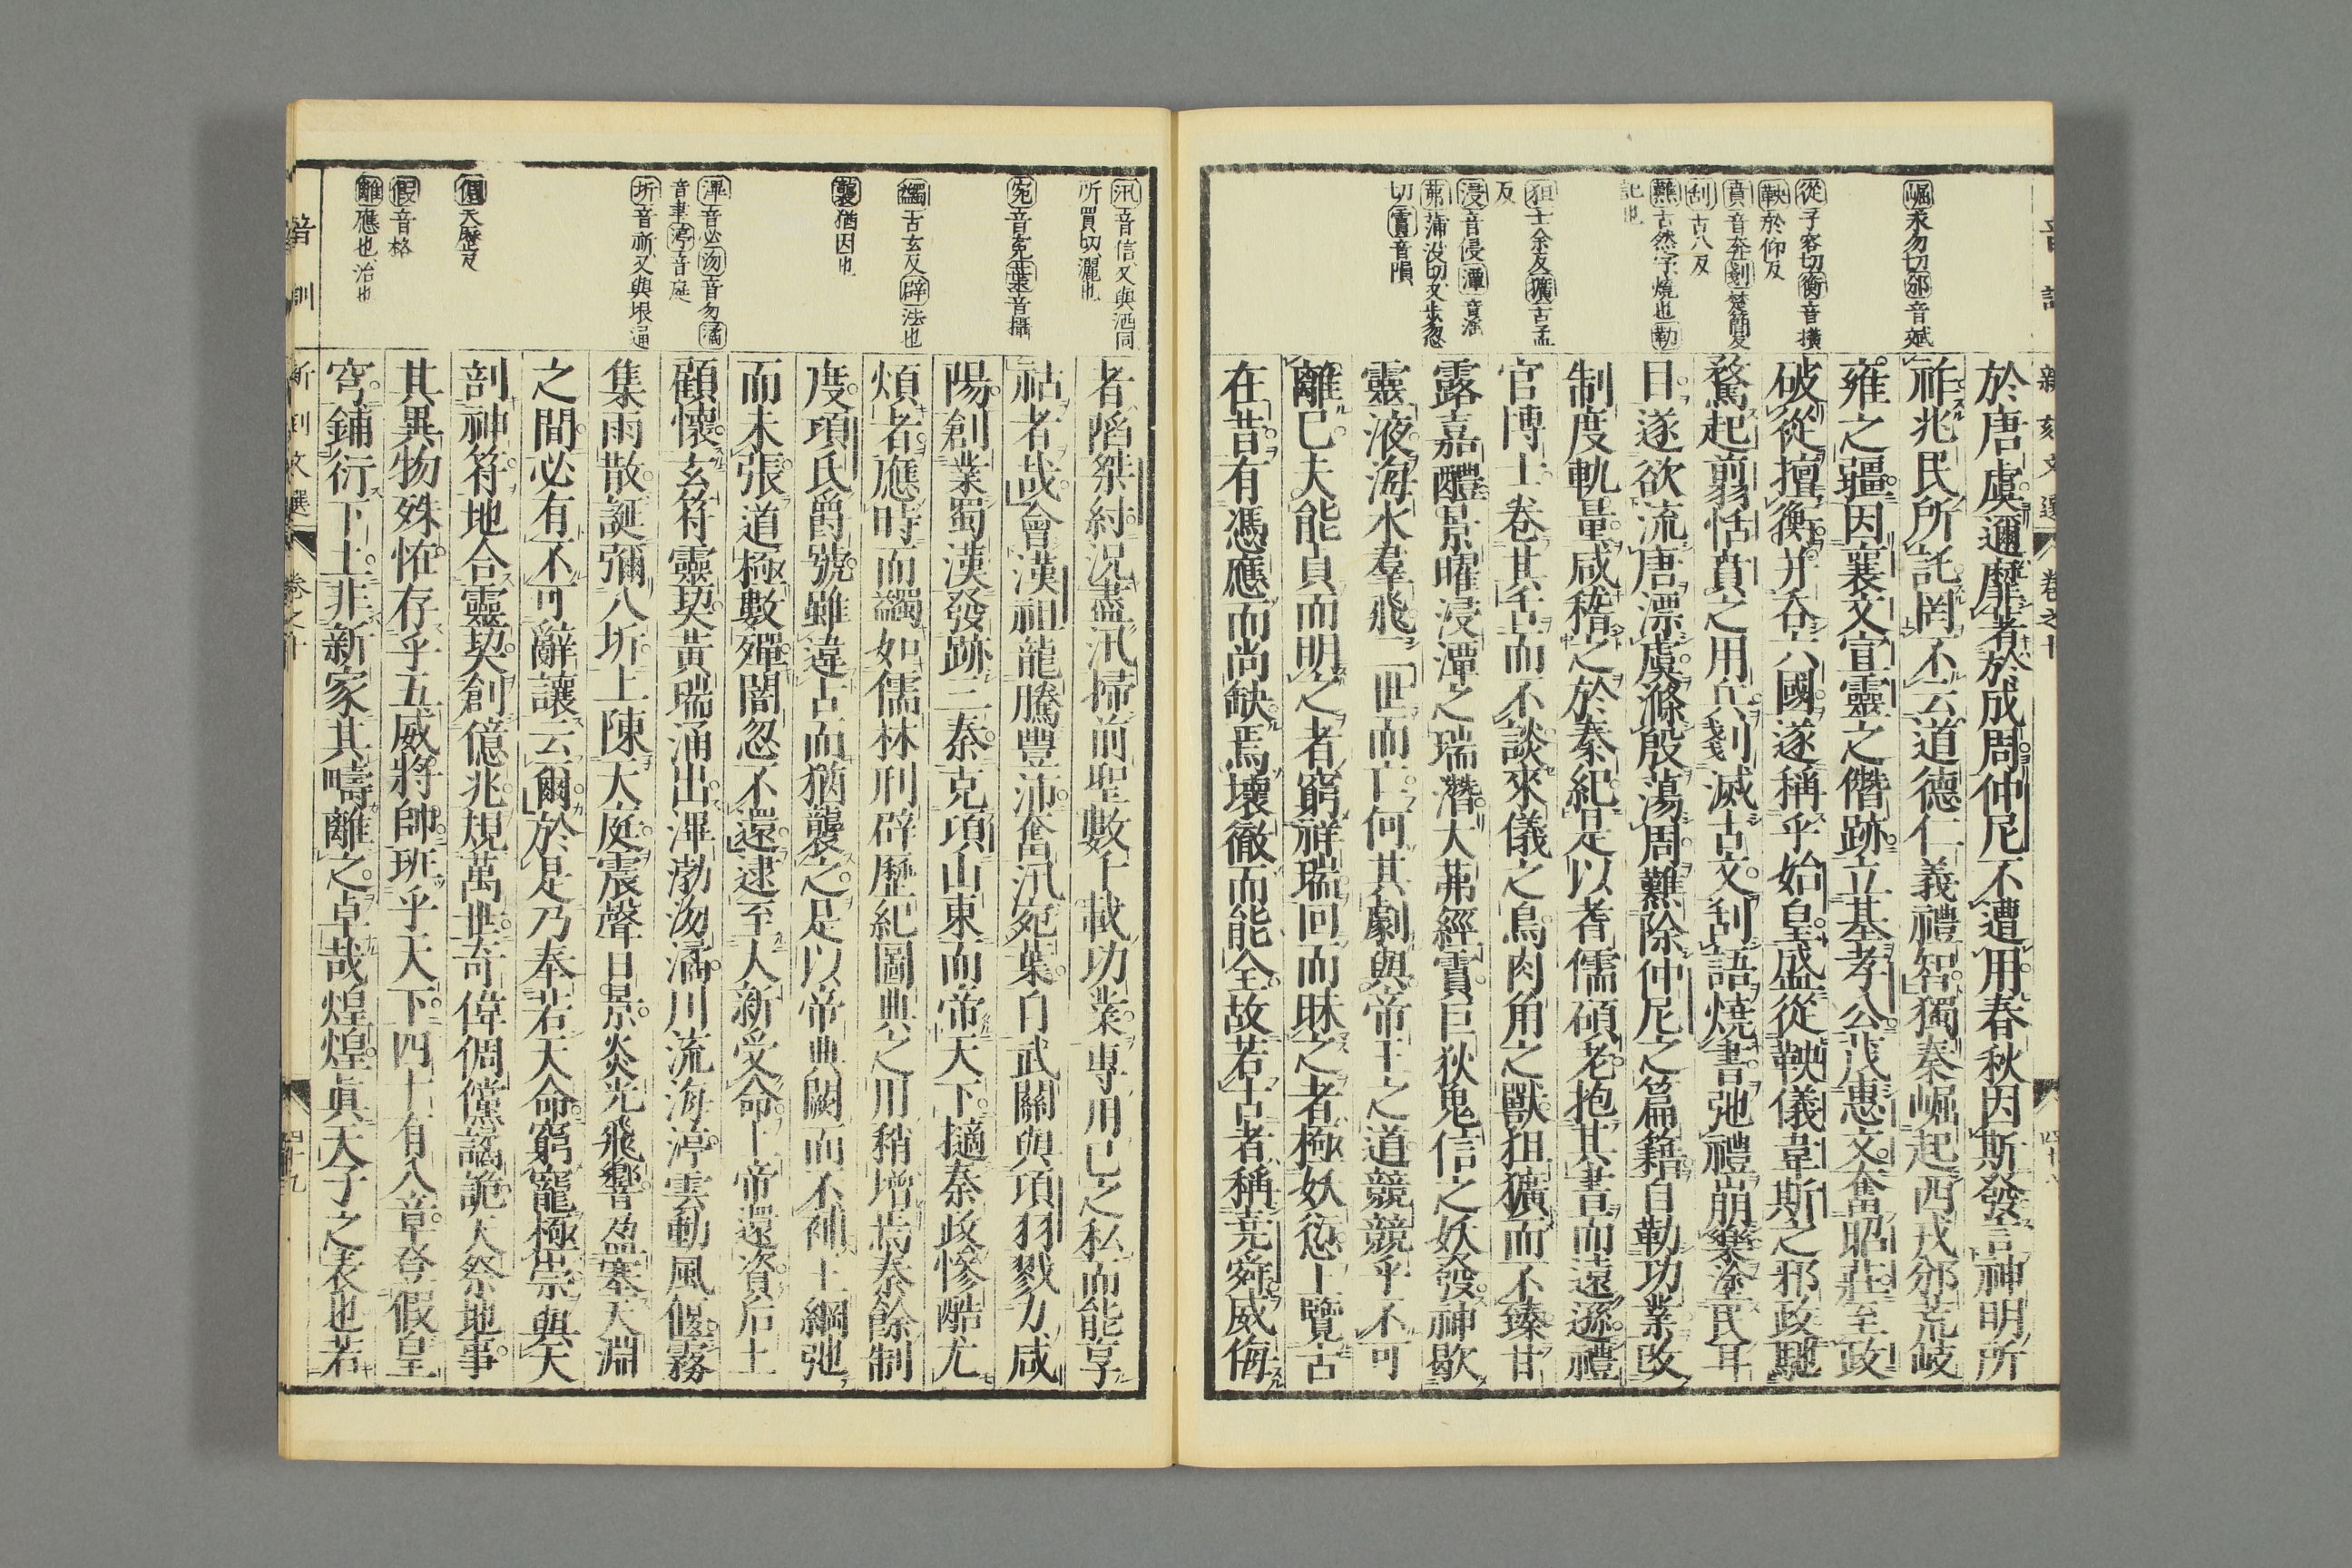 音訓
新刻文選
卷之十
崛求勿切邠音斌
從子容切衡音橫
鞅於仰反
賁音奔剗楚簡反
刮古八反
難古然字燒也勒
記也
狙士余反獷古孟
反
浸音侵潭音淫
茀蒲沒切又步忽
切霣音隕
於唐虞邇靡著於成周仲尼不遭用春秋因斯發言神明所
祚兆民所託罔不云道德仁義禮智獨秦崛起西戎邠荒岐
雍之疆因襄文宣靈之僭跡立基孝公茂惠文奮昭莊至政
破從擅衡并吞六國遂稱乎始皇盛從鞅儀韋斯之邪政馳
騖起翦恬賁之用兵剗滅古文刮語燒書弛禮崩樂塗民耳
目遂欲流唐漂虞滌殷蕩周難除仲尼之篇籍自勒功業改
制度軌量咸稽之於秦紀是以耆儒碩老抱其書而遠遜禮
官博士卷其舌而不談來儀之鳥肉角之獸狙獷而不臻甘
露嘉醴景曜浸潭之瑞潛大茀經霣巨狄鬼信之妖發神歇
靈液海水羣飛二世而亡何其劇與帝王之道競競乎不可
離已夫能貞而明之者窮祥瑞回而昧之者極妖愆上覽古
在昔有憑應而尚缺焉壞徹而能全故若古者稱堯舜威侮
汛音信又與洒同
所買切灑也
宛音苑葉音攝
蠲古玄反辟法也
襲猶因也
滭音必沕音勿潏
音聿渟音庭
圻音祈又與垠通
倜天歷反
假音格
離應也治也
者陷桀紂況盡汛掃前聖數千載功業專用已之私而能享
祜者哉會漢祖龍騰豐沛奮汛宛葉自武關與項羽戮力咸
陽創業蜀漢發跡三秦克項山東而帝天下擿秦政慘酷尤
煩者應時而蠲如儒林刑辟歷紀圖典之用稍增焉秦餘制
度項氏爵號雖違古而猶襲之是以帝典闕而不補王綱弛
而未張道極數殫闇忽不還逮至大新受命上帝還資后土
顧懷玄符靈契黃瑞涌出滭渤沕潏川流海渟雲動風偃霧
集雨散誕彌八圻上陳天庭震聲日景炎光飛響盈塞天淵
之間必有不可辭讓云爾於是乃奉若天命窮寵極崇與天
剖神符地合靈契創億兆規萬世奇偉倜儻譎詭天祭地事
其異物殊怪存乎五威將帥班乎天下四十有八章登假皇
穹鋪衍下土非新家其疇離之卓哉煌煌真天子之表也若
音訓
新刻文選
卷之十
四十九